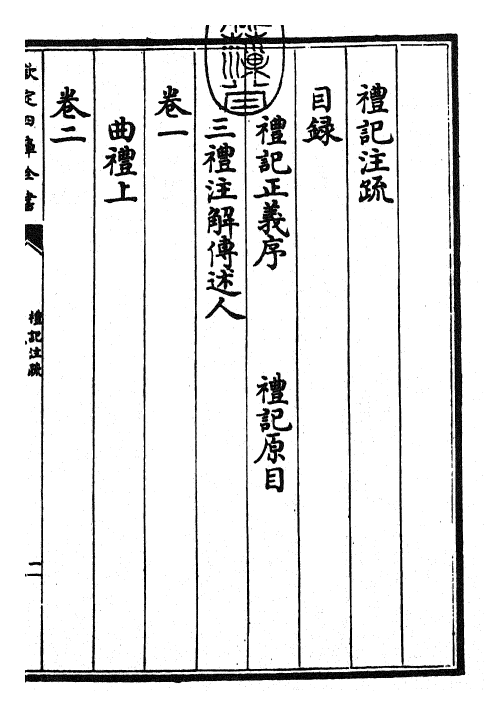 禮記注疏
目録
禮記正義序　禮記原目
三禮注解傳述人
卷一
曲禮上
卷二
欽定四庫全書
禮記注疏
二